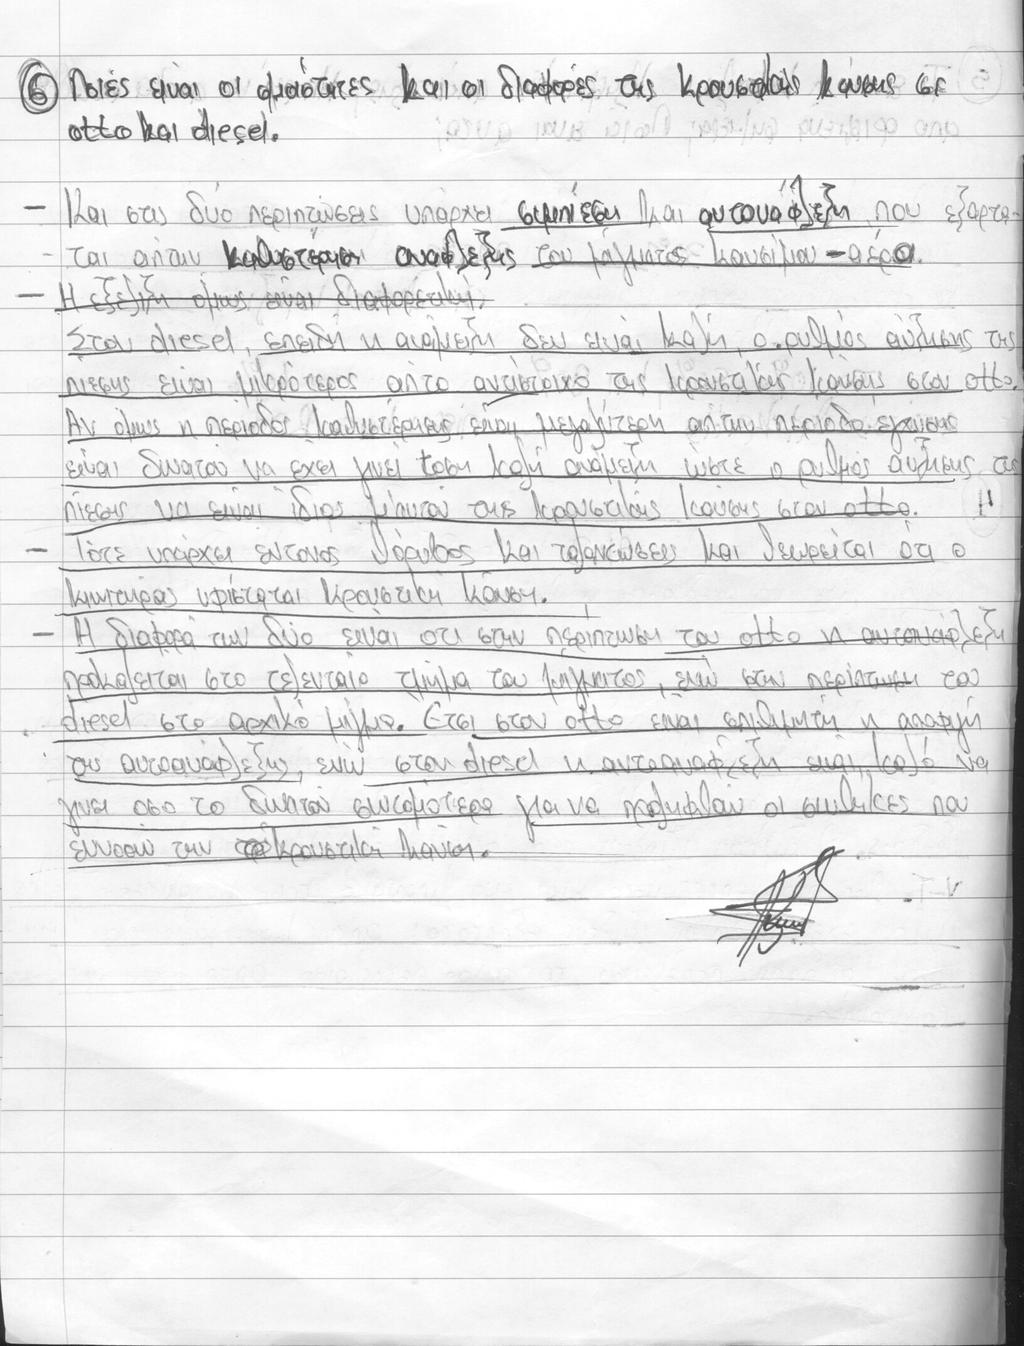 6 Ποιές είναι οι ομοιότητες και οι διαφορές της κρουστικής καύσης σε
otto και diesel.
- Και στις δύο περιπτώσεις υπάρχει συμπίεση και αυτανάφλεξη που εξαρτα-
- ται απ'την καθυστέρηση ανάφλεξης του μίγματος καυσίμου - αέρα.
- Η εξέλιξη όμως είναι διαφορετική.
Στον diesel, επειδή η ανάμειξη δεν είναι καλή, ο ρυθμός αύξησης της
πίεσης είναι μικρότερος απ'το αντίστοιχο της κρουστικής καύσης στον otto.
Αν όμως η περίοδος καθυστέρησης είναι μεγαλύτερη απ'την περίοδο έγχυσης
είναι δυνατόν να έχει γίνει τοση καλή ανάμειξη ώστε ο ρυθμός αύξησης της
πίεσης να είναι ίδιος μ'αυτού της κρουστικής καύσης στον otto. !!
- Τότε υπάρχει έντονος θόρυβος και ταλαντώσεις και θεωρείται ότι ο
κινητήρας υφίσταται κρουστική καύση.
- Η διαφορά των δύο είναι οτι στην περίπτωση του otto η αυτανάφλεξη
προκαλείται στο τελευταίο τμήμα του μίγματος, ενώ στην περίπτωση του
diesel στο αρχικό μίγμα. Ετσι στον otto είναι επιθυμητή η αποφυγή
της αυτοανάφλεξης, ενώ στον diesel η αυτοαναφλεξη είναι καλό να
γίνει οσο το δυνατόν συντομότερα για να προληφθούν οι συνθήκες που
ευνοούν την κρουστική καύση.